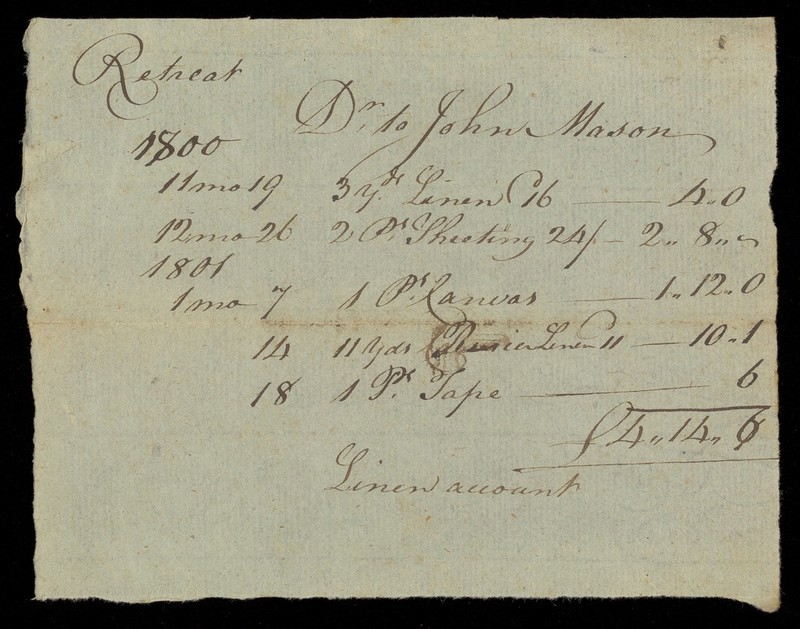 Retreat
Dr. to John Mason
1800
11 mo 19 3 yds Linen @ 16 — 4,, 0
12 mo 26 2 Ps Sheeting 24/ – 2,, 8,, 0
1801
1 mo 7 1 Ps. Canvas — 1,, 12,, 0
14 11 yds Linen @ 11 — 10,, 1
18 1 Ps. Tape — 6
£4,, 14,, 6
Linen account